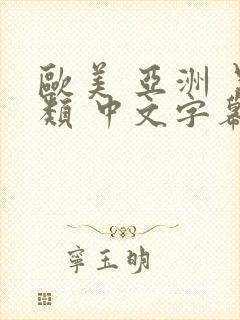 歐美 亞洲
類 中文字幕
寧玉明